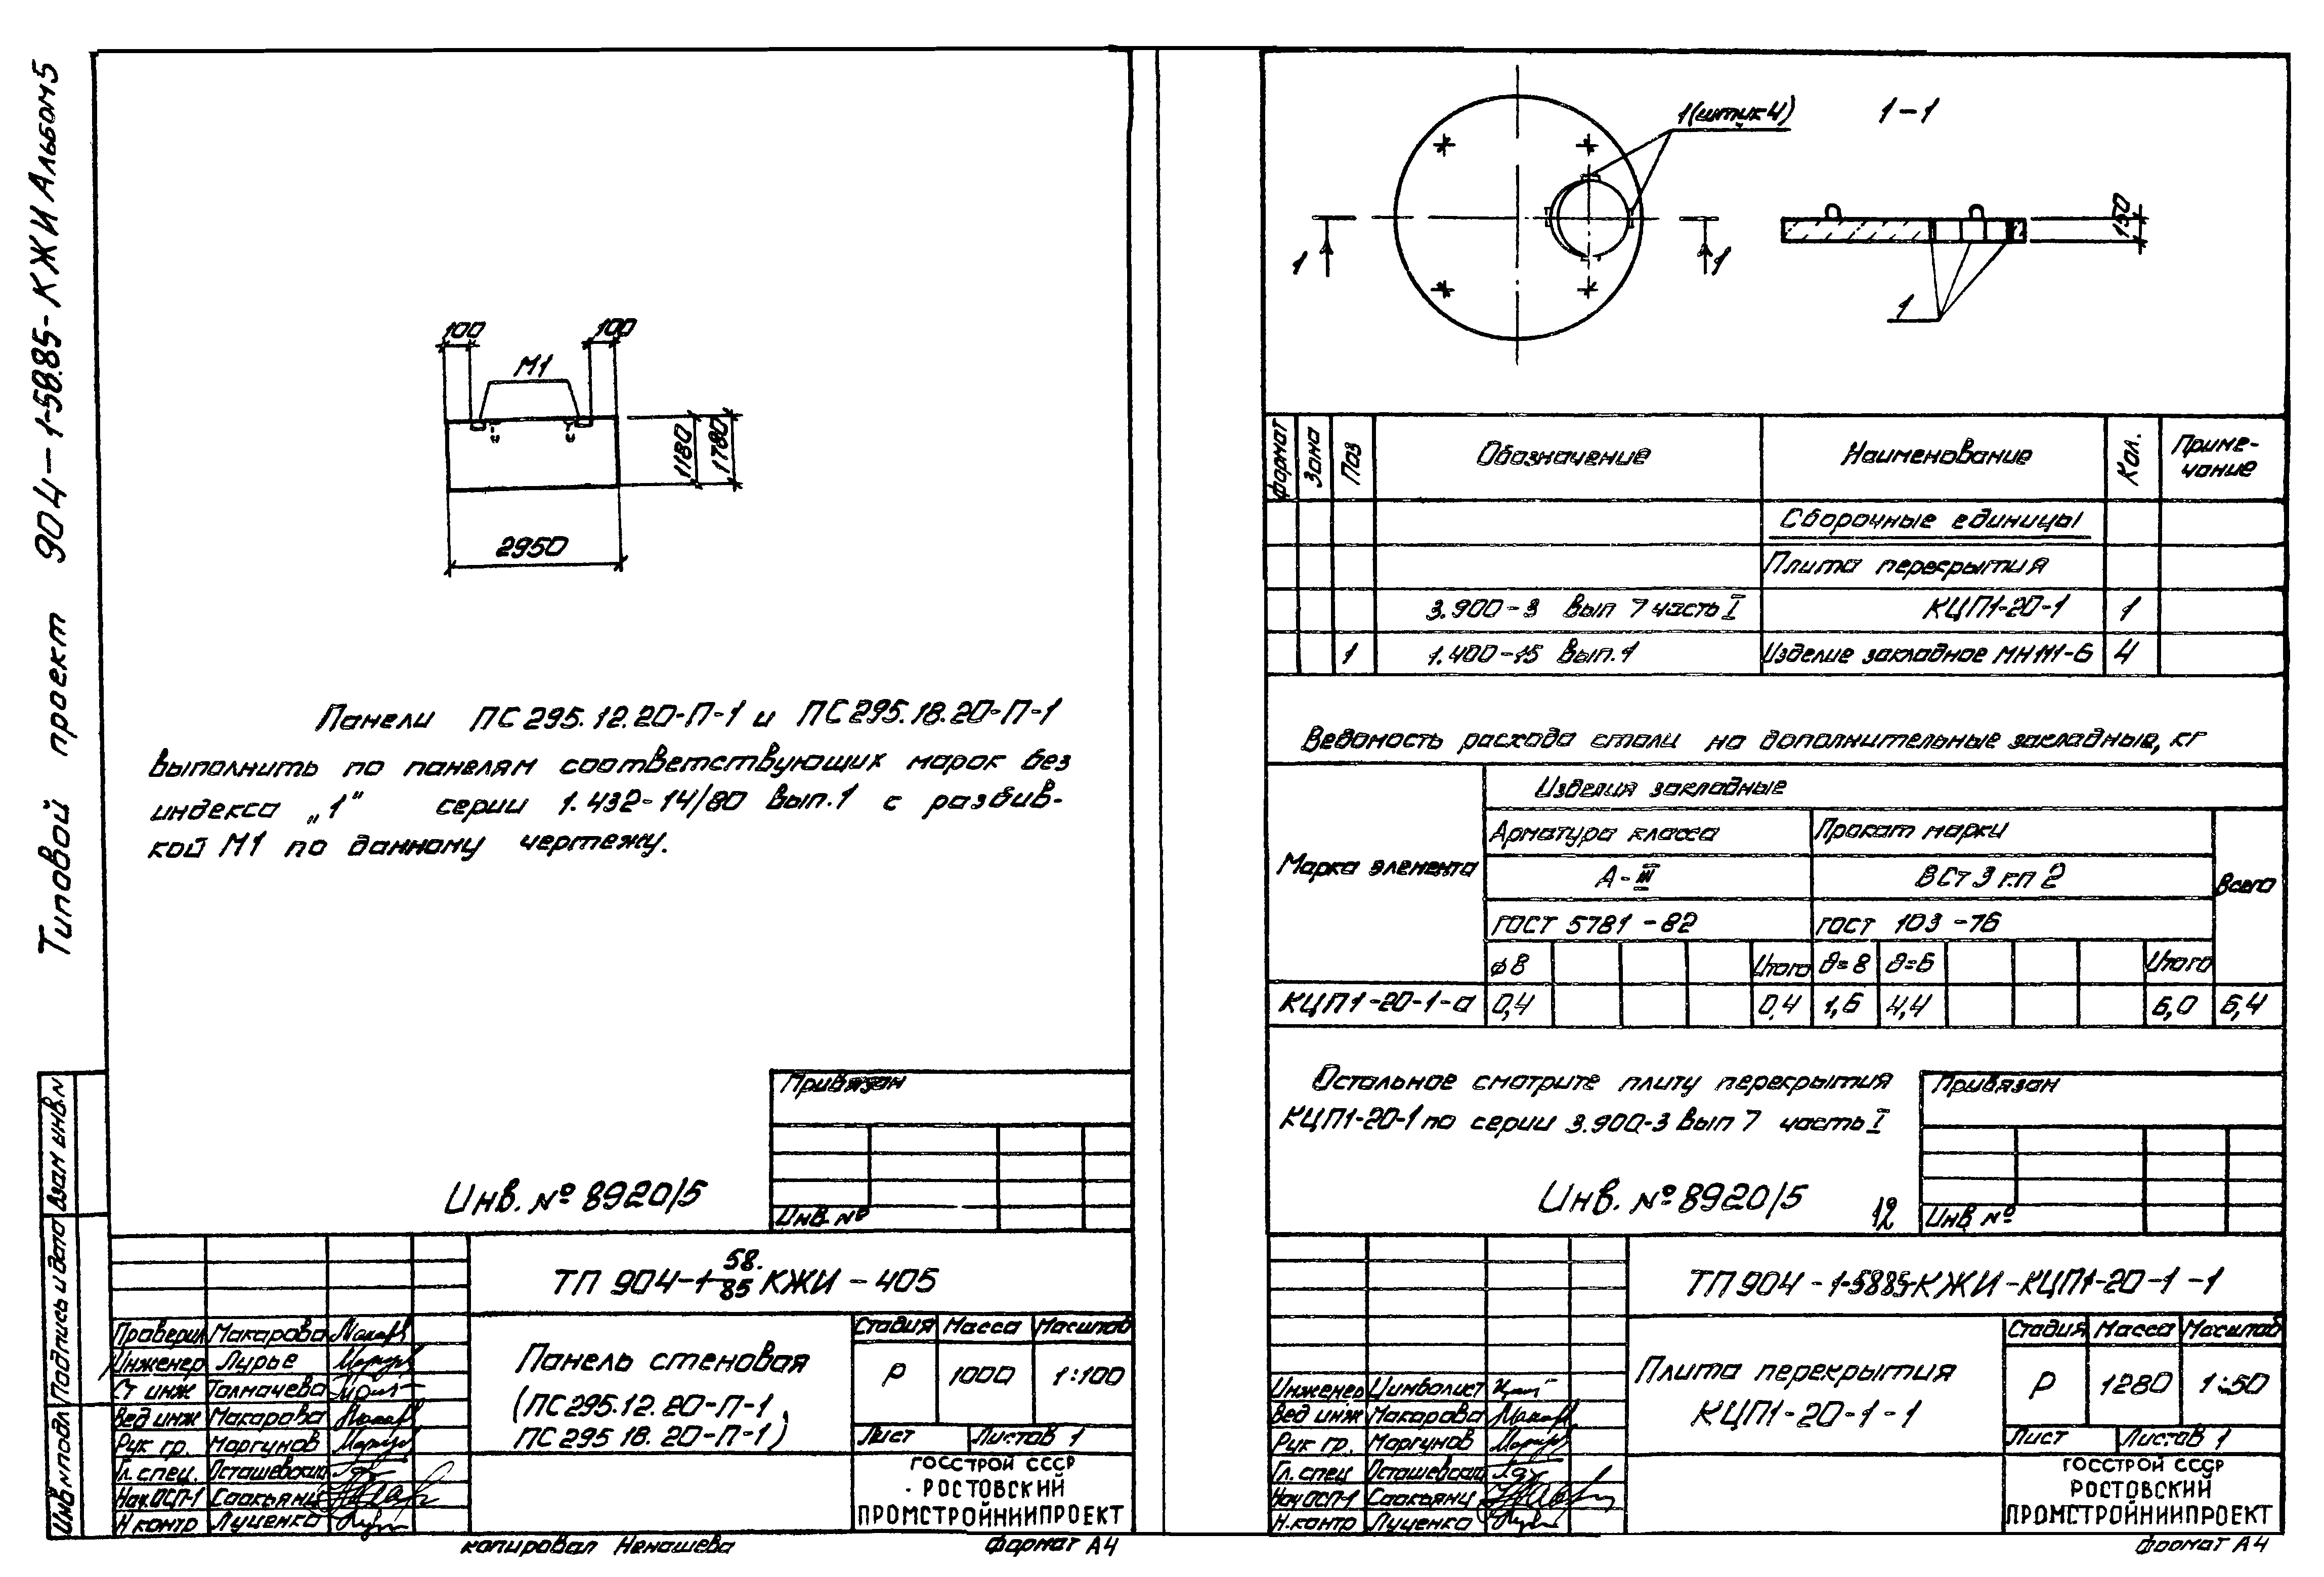 Типовой проект 904-1-58.85-КЖИ Альбом 5
100
100
М1
1180
1780
2950
Панели ПС295.12.20-П-1 и ПС295.18.20-П-1
выполнить по панелям соответствующих марок без
индекса „1“ серии 1.432-14/80 вып.1 с разбив-
кой М1 по данному чертежу.
Привязан
Инв. №
Инв. № 8920/5
Инв.№подл
Подпись и дата
Взам инв.№
ТП 904-1-58.85 КЖИ-405
Проверил Макарова
Инженер Лурье
Ст инж Толмачева
Вед инж Макарова
Рук гр. Моргунов
Гл. спец. Осташевский
Нач.ОСП-1 Саакьянц
Н контр Луценко
Панель стеновая
(ПС295.12.20-П-1,
ПС295 18.20-П-1)
Стадия Масса Масштаб
Р 1000 1:100
Лист Листов 1
ГОССТРОЙ СССР
РОСТОВСКИЙ
ПРОМСТРОЙНИИПРОЕКТ
копировал Ненашева
формат А4
1(штук4)
1-1
1
1
150
1
Формат Зона Поз Обозначение Наименование Кол. Приме-
чание
Сборочные единицы
Плита перекрытия
3.900-3 Вып 7 часть I КЦП1-20-1 1
1 1.400-15 Вып.1 Изделие закладное МН111-6 4
Ведомость расхода стали на дополнительные закладные, кг
Марка элемента
Изделия закладные
Арматура класса Прокат марки
А-III ВСт3 гп2
Всего
ГОСТ 5781-82 ГОСТ 103-76
ф8 Итого δ=8 δ=6 Итого
КЦП1-20-1-а 0,4 0,4 1,6 4,4 6,0 6,4
Остальное смотрите плиту перекрытия
КЦП1-20-1 по серии 3.900-3 Вып 7 часть I
Привязан
Инв №
Инв. № 8920/5
12
ТП 904-1-5885-КЖИ-КЦП1-20-1-1
Инженер Цимболист
Вед инж Макарова
Рук гр. Моргунов
Гл. спец Осташевский
Нач ОСП-1 Саакьянц
Н.контр Луценко
Плита перекрытия
КЦП1-20-1-1
Стадия Масса Масштаб
Р 1280 1:50
Лист Листов 1
ГОССТРОЙ СССР
РОСТОВСКИЙ
ПРОМСТРОЙНИИПРОЕКТ
формат А4